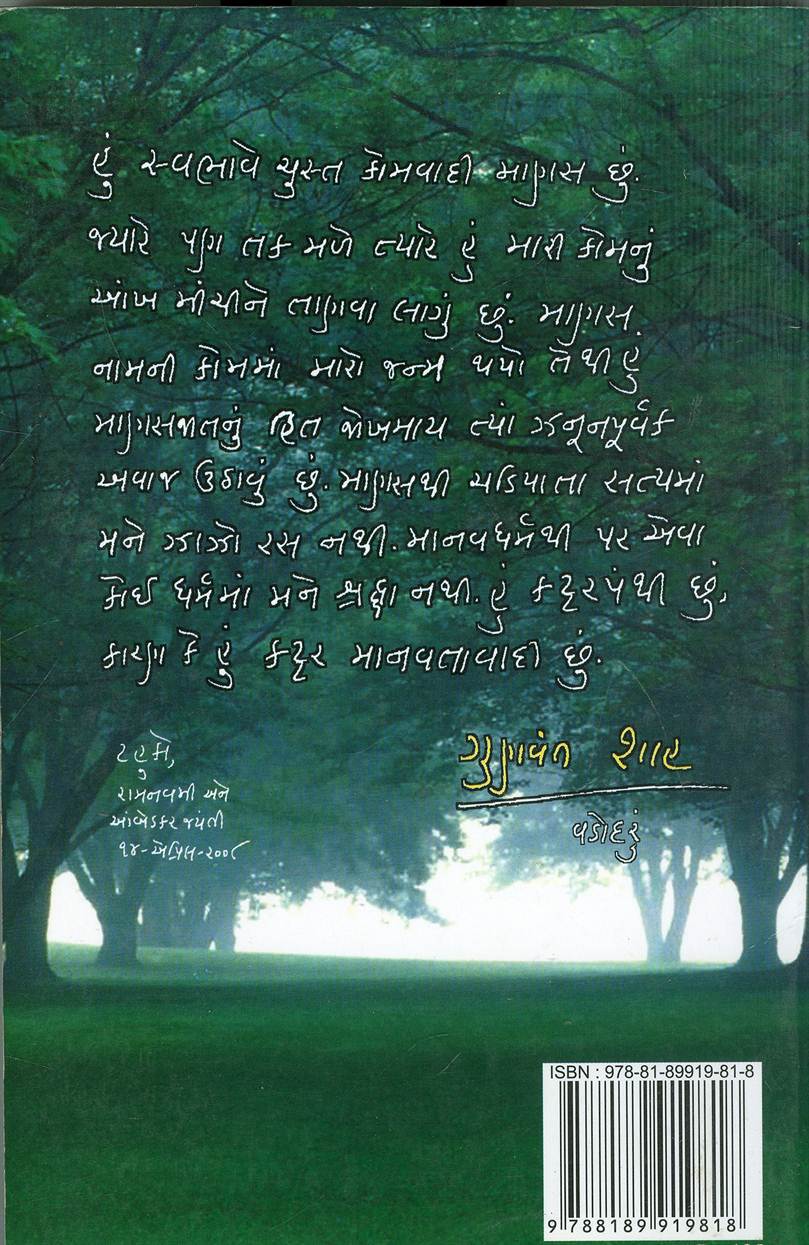 હું સ્વભાવે ચુસ્ત કોમવાદી માણસ છું.
જ્યારે પણ તક મળે ત્યારે હું મારી કોમનું
આંખ મીંચીને તાણવા લાગું છું. માણસ
નામની કોમમાં મારો જન્મ થયો તેથી હું
માણસજાતનું હિત જોખમાય ત્યાં ઝનૂનપૂર્વક
અવાજ ઉઠાવું છું. માણસથી ચડિયાતા સત્યમાં
મને ઝાઝો રસ નથી. માનવધર્મથી પર એવા
કોઈ ધર્મમાં મને શ્રદ્ધા નથી. હું કટ્ટરપંથી છું,
કારણ કે હું કટ્ટર માનવતાવાદી છું.
ગુણવંત શાહ
વડોદરું
ટહુકો,
રામનવમી અને
આંબેડકર જયંતી
૧૪-એપ્રિલ-૨૦૦૮
ISBN : 978-81-89919-81-8
9 788189 919818